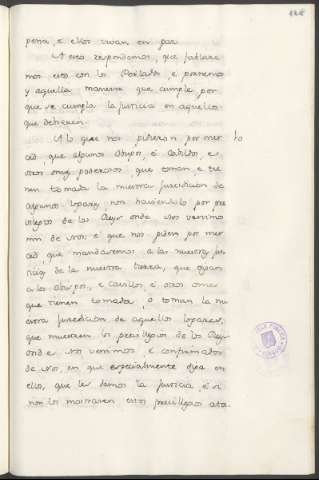 pena, e ellos vivan en paz
A esto respondemos, que fablare
mos esto con los Perlados, e pornemos
y aquella manera que cumpla por
que se cumpla la justicia en aquello
que debieren.
A lo que nos pidieron por mer
ced, que algunos Obispos, é Cabildos, e
otros omes poderosos, que toman e tie
nen tomada la nuestra jurediccion de
algunos logares, non haviendo por pre
vilegios de los Reyes onde Nos venimos
nin de Nos, é que nos piden por mer
ced, que mandaremos a las nuestras jus
ticias de la nuestra tierra, que oyan
a los Obispos, e Cavillos, é otros omes
que tienen tomada, ó toman la nu
estra jurediccion de aquellos logares,
que muestren los previllegios de los Reyes
onde Nos venimos, e confirmados
de Nos, en que especialmente diga en
ello, que les damos la justicia, é si
non los mostraren estos previllegios ata